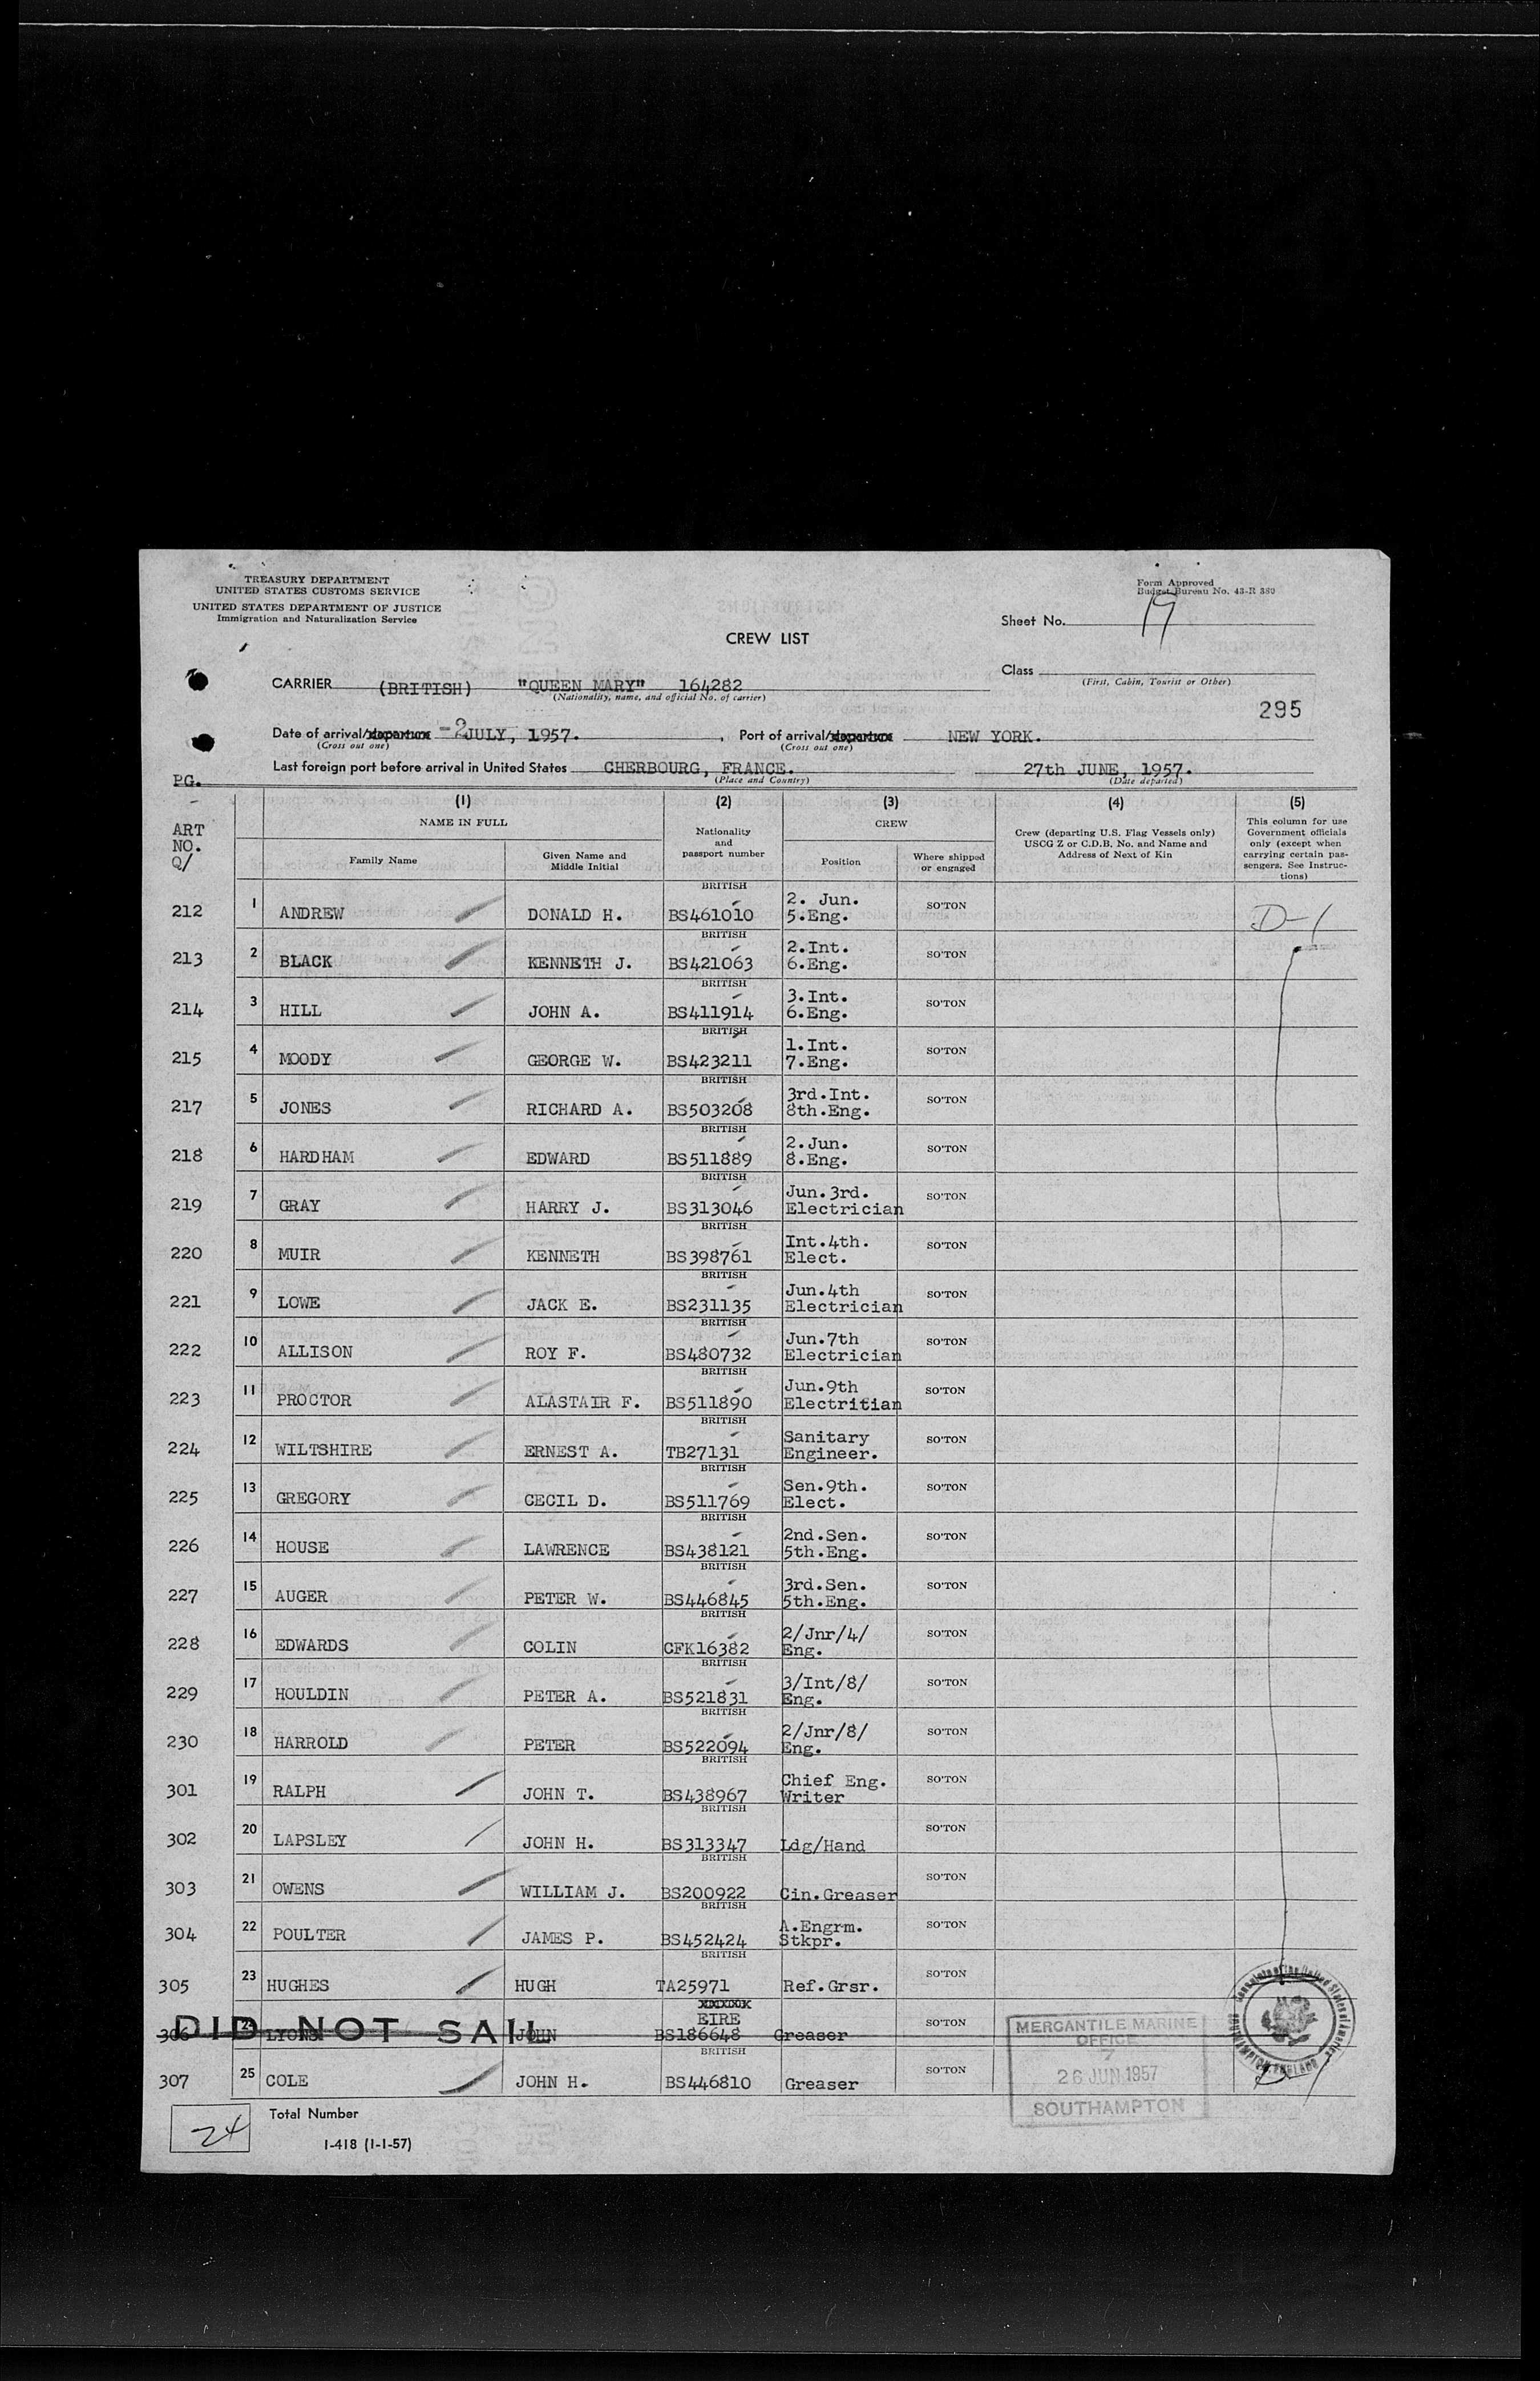 TREASURY DEPARTMENT
UNITED STATES CUSTOMS SERVICE
UNITED STATES DEPARTMENT OF JUSTICE
Immigration and Naturalization Service
Form Approved
Budget Bureau No. 43-R 380
Sheet No. 19
CREW LIST
Class
(First, Cabin, Tourist or Other)
CARRIER (BRITISH) "QUEEN MARY" 164282
(Nationality, name, and official No. of carrier)
295
Date of arrival/departure -2 JULY, 1957. , Port of arrival/departure NEW YORK.
(Cross out one) (Cross out one)
Last foreign port before arrival in United States CHERBOURG, FRANCE. 27th JUNE, 1957.
(Place and Country) (Date departed)
PG.
-
ART
NO.
Q/
(1) (2) (3) (4) (5)
NAME IN FULL
Family Name
Given Name and
Middle Initial
Nationality
and
passport number
CREW
Position
Where shipped
or engaged
Crew (departing U.S. Flag Vessels only)
USCG Z or C.D.B. No. and Name and
Address of Next of Kin
This column for use
Government officials
only (except when
carrying certain pas-
sengers. See Instruc-
tions)
BRITISH 2. Jun.
212 1 ANDREW DONALD H. BS461010 5.Eng. SO'TON D-1
BRITISH 2.Int.
213 2 BLACK KENNETH J. BS421063 6.Eng. SO'TON
BRITISH 3.Int.
214 3 HILL JOHN A. BS411914 6.Eng. SO'TON
BRITISH 1.Int.
215 4 MOODY GEORGE W. BS423211 7.Eng. SO'TON
BRITISH 3rd.Int.
217 5 JONES RICHARD A. BS503208 8th.Eng. SO'TON
BRITISH 2.Jun.
218 6 HARDHAM EDWARD BS511889 8.Eng. SO'TON
BRITISH Jun.3rd.
219 7 GRAY HARRY J. BS313046 Electrician SO'TON
BRITISH Int.4th.
220 8 MUIR KENNETH BS398761 Elect. SO'TON
BRITISH Jun.4th
221 9 LOWE JACK E. BS231135 Electrician SO'TON
BRITISH Jun.7th
222 10 ALLISON ROY F. BS480732 Electrician SO'TON
BRITISH Jun.9th
223 11 PROCTOR ALASTAIR F. BS511890 Electritian SO'TON
BRITISH Sanitary
224 12 WILTSHIRE ERNEST A. TB27131 Engineer. SO'TON
BRITISH Sen.9th.
225 13 GREGORY CECIL D. BS511769 Elect. SO'TON
BRITISH 2nd.Sen.
226 14 HOUSE LAWRENCE BS438121 5th.Eng. SO'TON
BRITISH 3rd.Sen.
227 15 AUGER PETER W. BS446845 5th.Eng. SO'TON
BRITISH 2/Jnr/4/
228 16 EDWARDS COLIN CFK16382 Eng. SO'TON
BRITISH 3/Int/8/
229 17 HOULDIN PETER A. BS521831 Eng. SO'TON
BRITISH 2/Jnr/8/
230 18 HARROLD PETER BS522094 Eng. SO'TON
BRITISH Chief Eng.
301 19 RALPH JOHN T. BS438967 Writer SO'TON
BRITISH
302 20 LAPSLEY JOHN H. BS313347 Ldg/Hand SO'TON
BRITISH
303 21 OWENS WILLIAM J. BS200922 Cin.Greaser SO'TON
BRITISH A.Engrm.
304 22 POULTER JAMES P. BS452424 Stkpr. SO'TON
BRITISH
305 23 HUGHES HUGH TA25971 Ref.Grsr. SO'TON
EIRE
306 24 LYONS JOHN BS186648 Greaser SO'TON
DID NOT SAIL
BRITISH
307 25 COLE JOHN H. BS446810 Greaser SO'TON
MERCANTILE MARINE
OFFICE
7
26 JUN 1957
SOUTHAMPTON
Consulate of the United States of America
SOUTHAMPTON, ENGLAND
24
Total Number
I-418 (1-1-57)